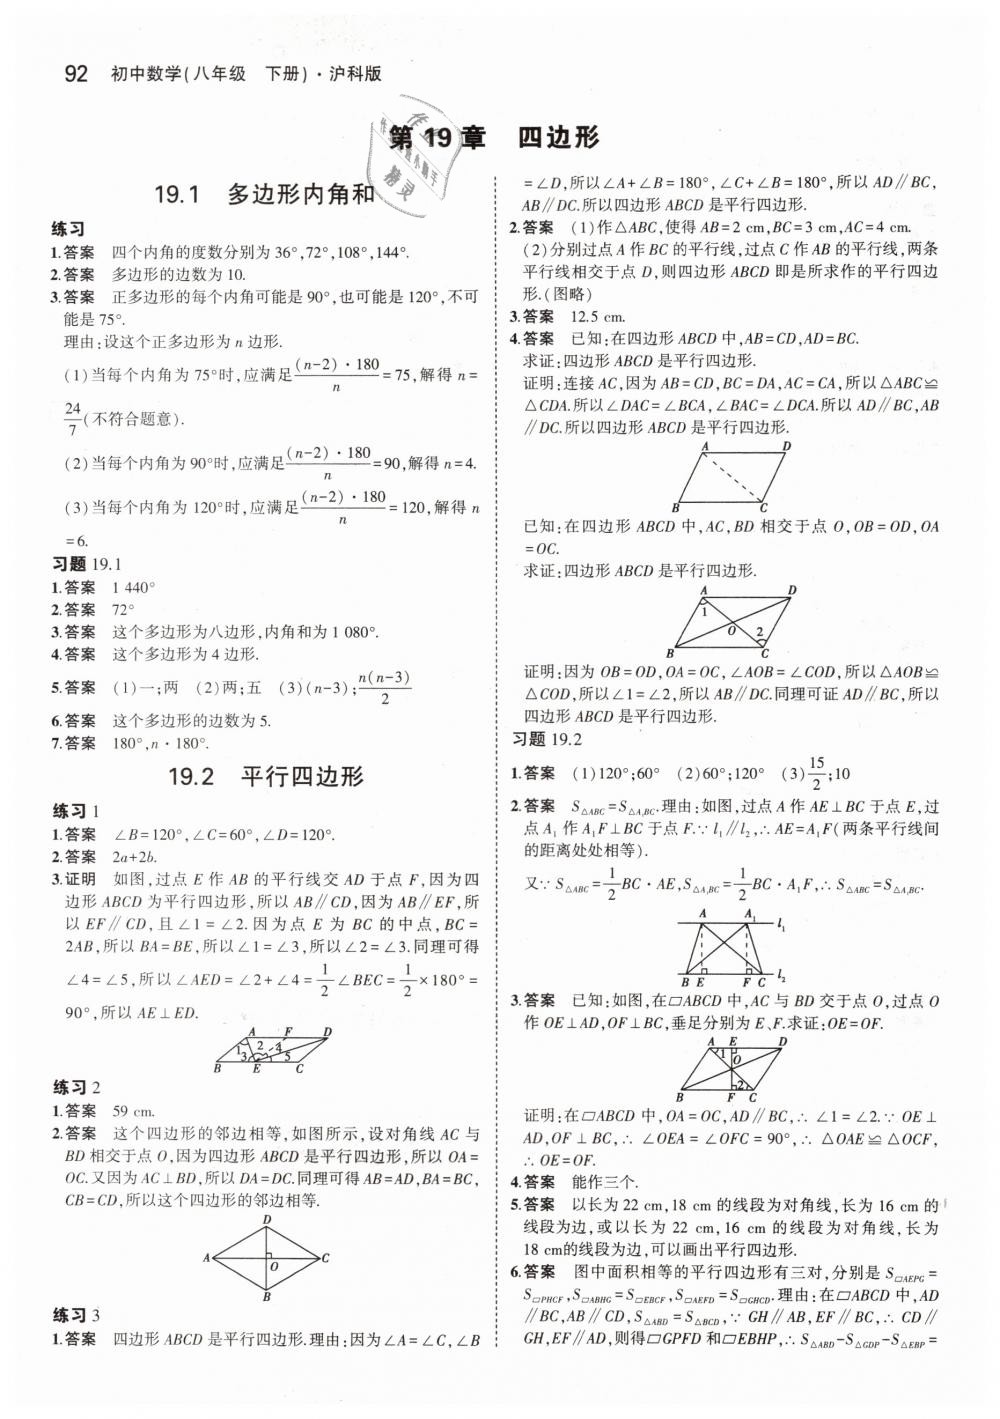 92 初中数学(八年级 下册)·沪科版
第 19 章 四边形
19.1 多边形内角和
练习
1.答案 四个内角的度数分别为 36°,72°,108°,144°.
2.答案 多边形的边数为 10.
3.答案 正多边形的每个内角可能是 90°,也可能是 120°,不可
能是 75°.
理由:设这个正多边形为 n 边形.
(1)当每个内角为 75°时,应满足(n-2)·180/n=75,解得 n=
24/7(不符合题意).
(2)当每个内角为 90°时,应满足(n-2)·180/n=90,解得 n=4.
(3)当每个内角为 120°时,应满足(n-2)·180/n=120,解得 n
=6.
习题 19.1
1.答案 1 440°
2.答案 72°
3.答案 这个多边形为八边形,内角和为 1 080°.
4.答案 这个多边形为 4 边形.
5.答案 (1)一;两 (2)两;五 (3)(n-3);n(n-3)/2
6.答案 这个多边形的边数为 5.
7.答案 180°,n·180°.
19.2 平行四边形
练习 1
1.答案 ∠B=120°,∠C=60°,∠D=120°.
2.答案 2a+2b.
3.证明 如图,过点 E 作 AB 的平行线交 AD 于点 F,因为四
边形 ABCD 为平行四边形,所以 AB∥CD,因为 AB∥EF,所
以 EF∥CD,且∠1=∠2.因为点 E 为 BC 的中点,BC=
2AB,所以 BA=BE,所以∠1=∠3,所以∠2=∠3.同理可得
∠4=∠5,所以∠AED=∠2+∠4=1/2∠BEC=1/2×180°=
90°,所以 AE⊥ED.
A F D
1 2 4
3 5
B E C
练习 2
1.答案 59 cm.
2.答案 这个四边形的邻边相等,如图所示,设对角线 AC 与
BD 相交于点 O,因为四边形 ABCD 是平行四边形,所以 OA=
OC.又因为 AC⊥BD,所以 DA=DC.同理可得 AB=AD,BA=BC,
CB=CD,所以这个四边形的邻边相等.
D
A O C
B
练习 3
1.答案 四边形 ABCD 是平行四边形.理由:因为∠A=∠C,∠B
=∠D,所以∠A+∠B=180°,∠C+∠B=180°,所以 AD∥BC,
AB∥DC.所以四边形 ABCD 是平行四边形.
2.答案 (1)作△ABC,使得 AB=2 cm,BC=3 cm,AC=4 cm.
(2)分别过点 A 作 BC 的平行线,过点 C 作 AB 的平行线,两条
平行线相交于点 D,则四边形 ABCD 即是所求作的平行四边
形.(图略)
3.答案 12.5 cm.
4.答案 已知:在四边形 ABCD 中,AB=CD,AD=BC.
求证:四边形 ABCD 是平行四边形.
证明:连接 AC,因为 AB=CD,BC=DA,AC=CA,所以△ABC≌
△CDA.所以∠DAC=∠BCA,∠BAC=∠DCA.所以 AD∥BC,AB
∥DC.所以四边形 ABCD 是平行四边形.
A D
B C
已知:在四边形 ABCD 中,AC,BD 相交于点 O,OB=OD,OA
=OC.
求证:四边形 ABCD 是平行四边形.
A D
1
O 2
B C
证明:因为 OB=OD,OA=OC,∠AOB=∠COD,所以△AOB≌
△COD,所以∠1=∠2,所以 AB∥DC.同理可证 AD∥BC,所以
四边形 ABCD 是平行四边形.
习题 19.2
1.答案 (1)120°;60° (2)60°;120° (3)15/2;10
2.答案 S△ABC=S△A₁BC.理由:如图,过点 A 作 AE⊥BC 于点 E,过
点 A₁ 作 A₁F⊥BC 于点 F.∵ l₁∥l₂,∴ AE=A₁F(两条平行线间
的距离处处相等).
又∵ S△ABC=1/2BC·AE,S△A₁BC=1/2BC·A₁F,∴ S△ABC=S△A₁BC.
A A₁ l₁
B E F C l₂
3.答案 已知:如图,在▱ABCD 中,AC 与 BD 交于点 O,过点 O
作 OE⊥AD,OF⊥BC,垂足分别为 E、F.求证:OE=OF.
A E D
1 O
2
B F C
证明:在▱ABCD 中,OA=OC,AD∥BC,∴ ∠1=∠2.∵ OE⊥
AD,OF⊥BC,∴ ∠OEA=∠OFC=90°,∴ △OAE≌△OCF,
∴ OE=OF.
4.答案 能作三个.
5.答案 以长为 22 cm,18 cm 的线段为对角线,长为 16 cm 的
线段为边,或以长为 22 cm,16 cm 的线段为对角线,长为
18 cm的线段为边,可以画出平行四边形.
6.答案 图中面积相等的平行四边形有三对,分别是 S▱AEPG=
S▱PHCF,S▱ABHG=S▱EBCF,S▱AEFD=S▱GHCD.理由:在▱ABCD 中,AD
∥BC,AB∥CD,S△ABD=S△BCD,∵ GH∥AB,EF∥BC,∴ CD∥
GH,EF∥AD,则得▱GPFD 和▱EBHP,∴ S△ABD-S△GDP-S△EBP=